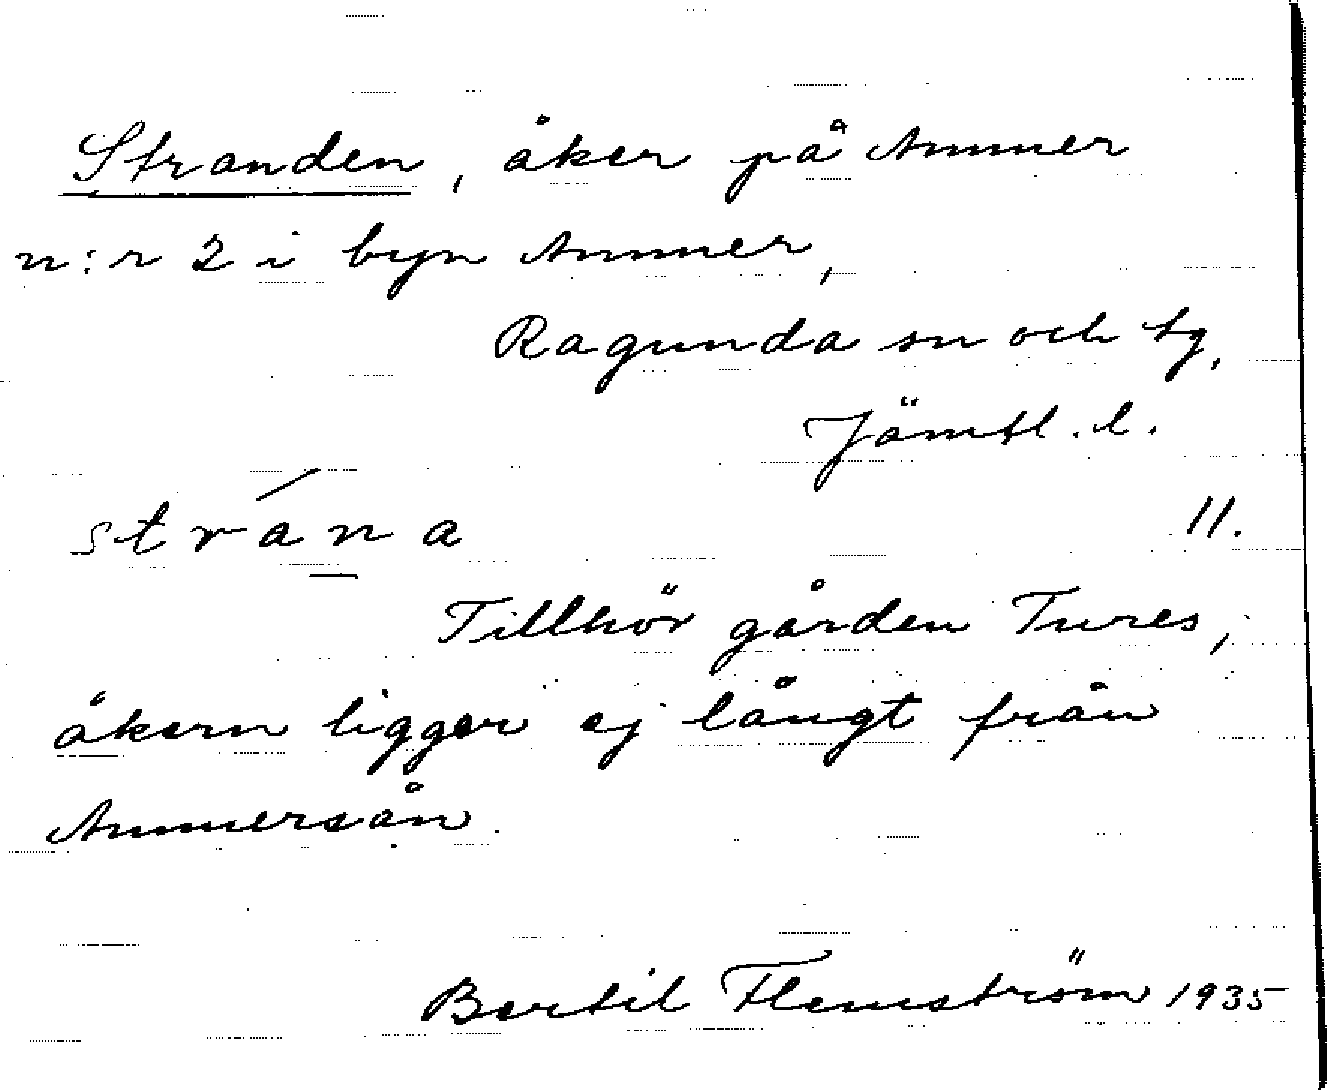 Stranden, åker på Ammer
n:r 2 i byn Ammer,
Ragunda sn och tg,
Jämtl. l.
strána
11.
Tillhör gården Tures,
åkern ligger ej långt från
Ammersån.
Bertil Flemström 1935